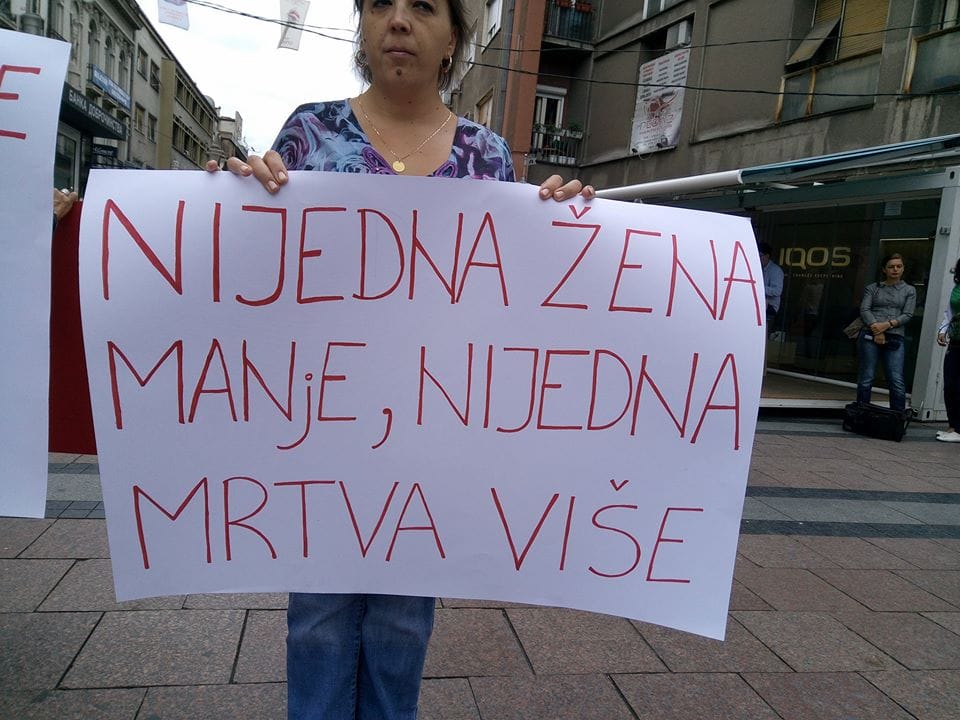 NIJEDNA ŽENA
MANjE, NIJEDNA
MRTVA VIŠE
E
IQOS